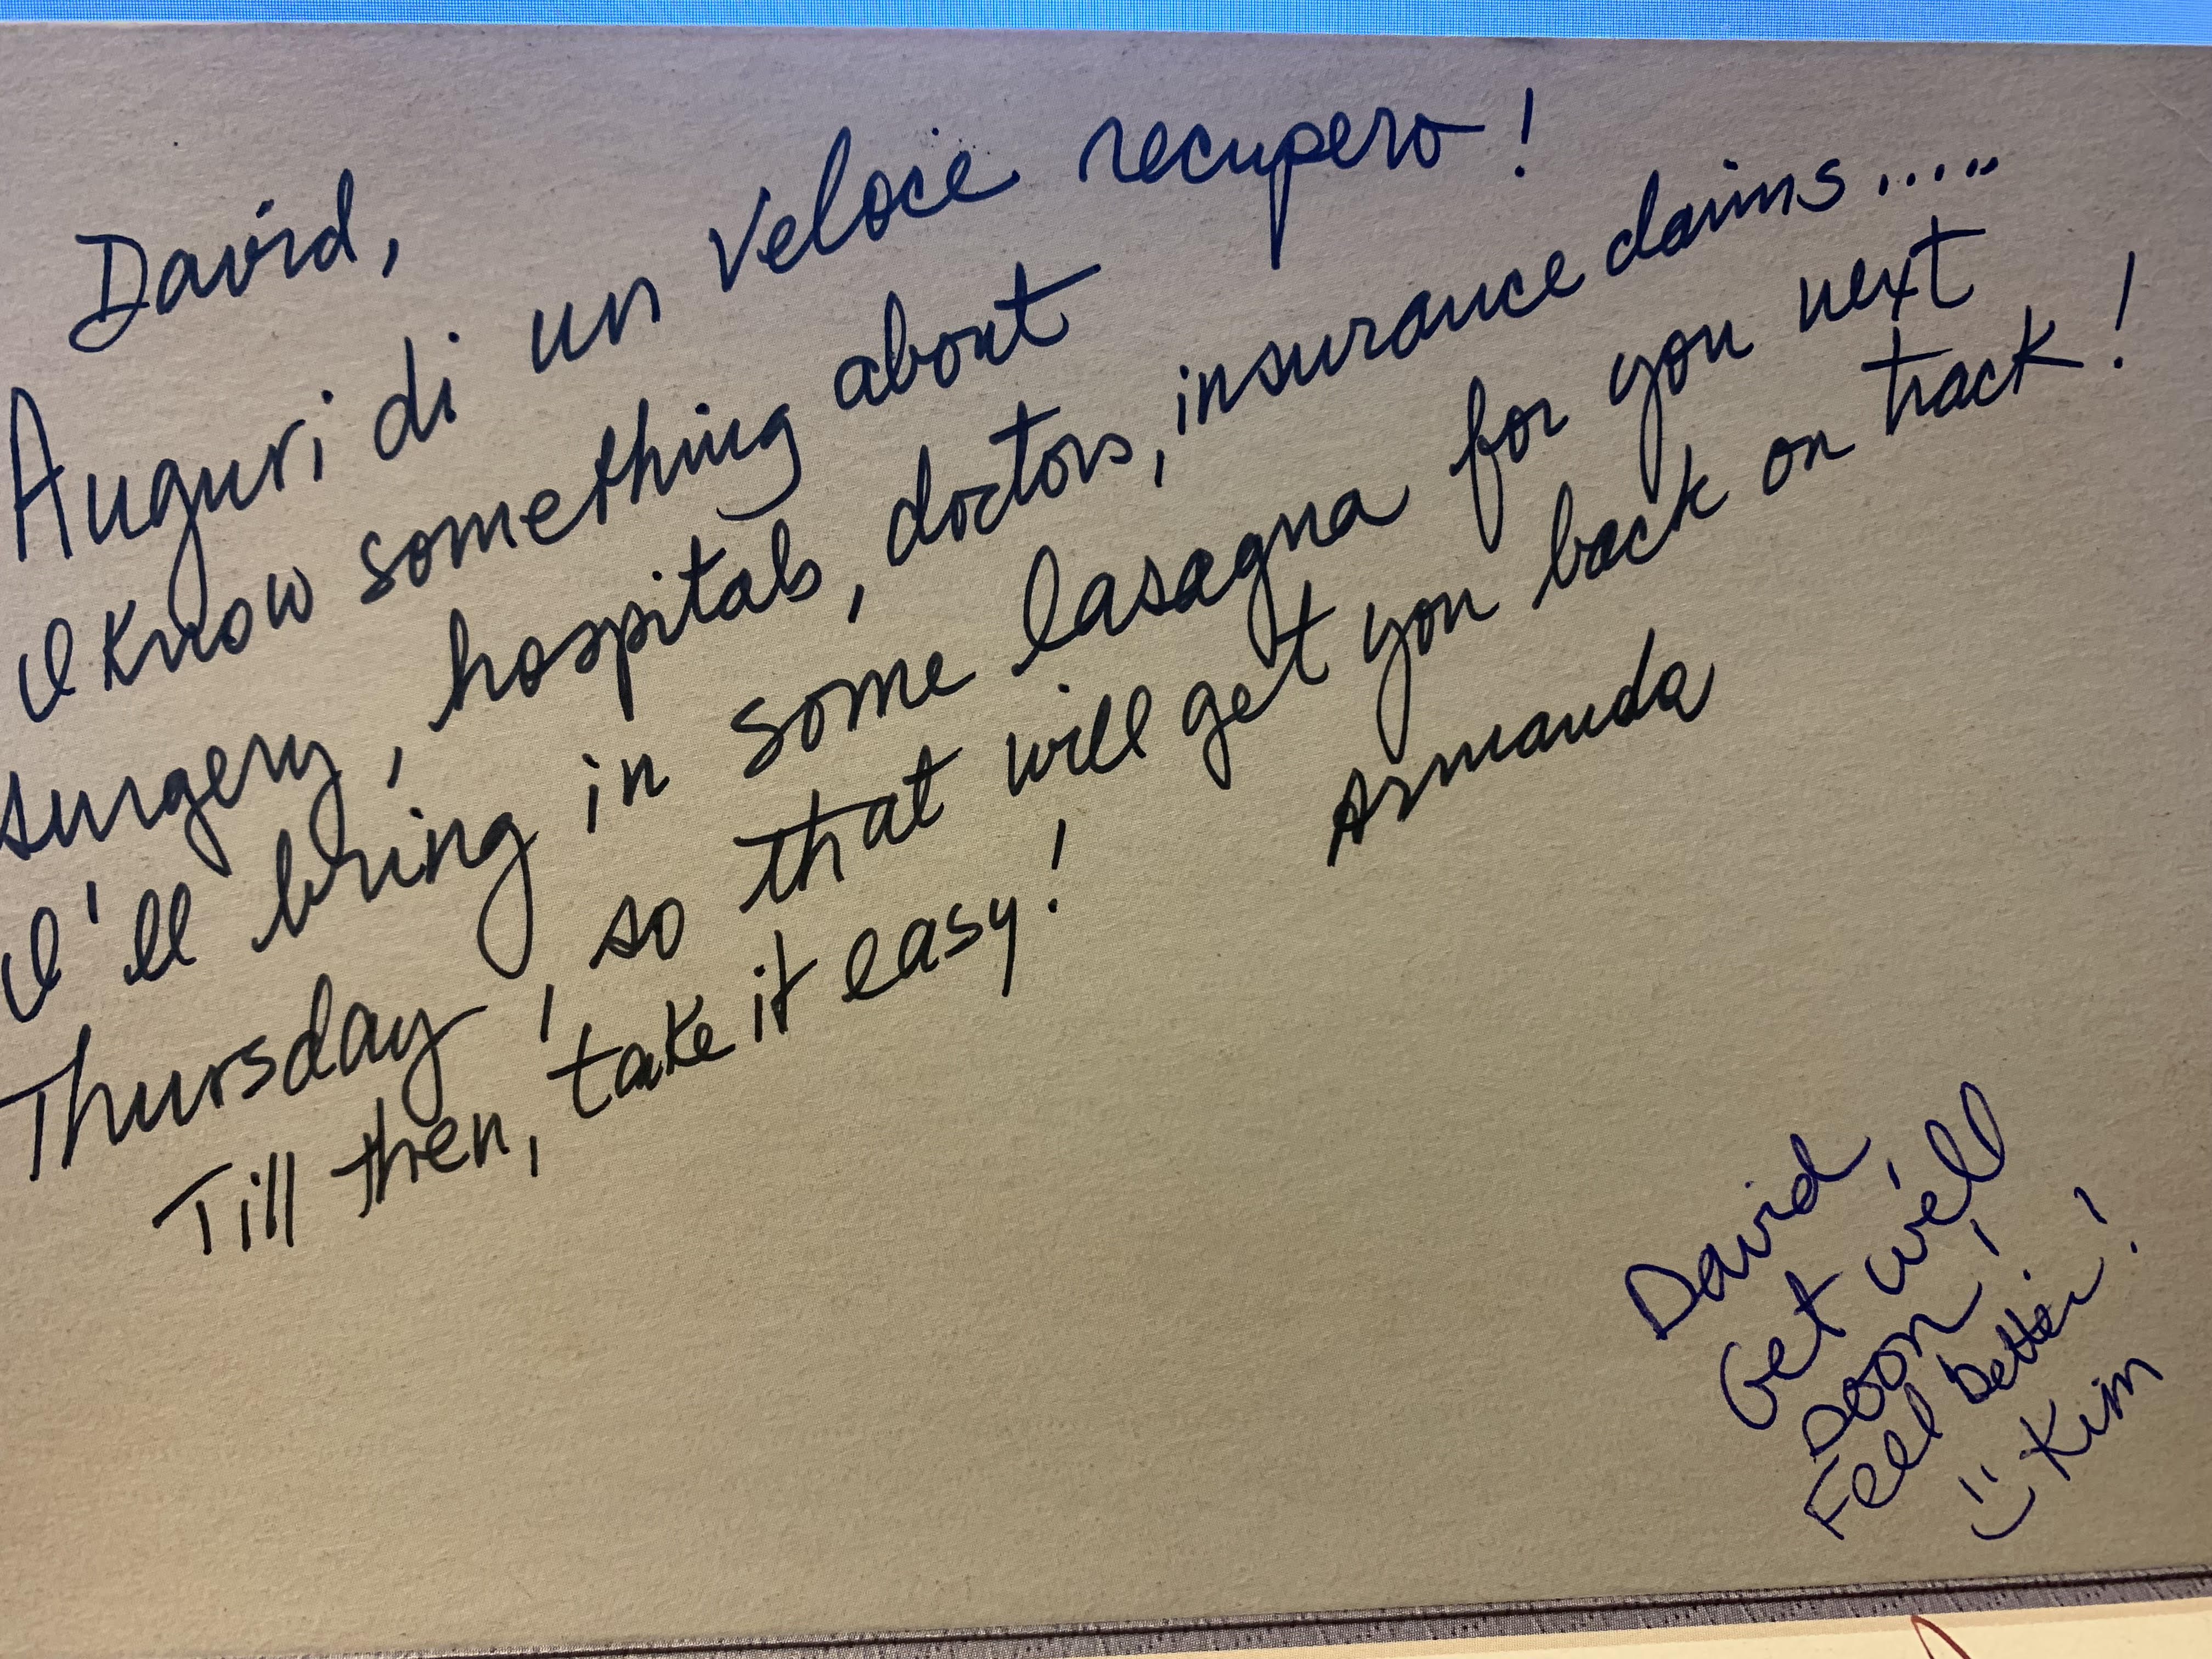 David,
Auguri di un veloce recupero!
I know something about
surgery, hospitals, doctors, insurance claims.....
I'll bring in some lasagna for you next
Thursday, so that will get you back on track!
Till then, take it easy!
Armanda
David,
Get well
soon!
Feel better!
Kim